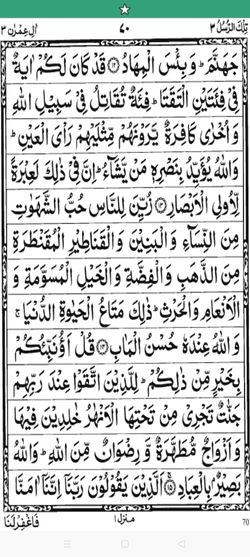 تِلْكَ الرُّسُلُ ٣ ٧٠ اٰلِ عِمْرٰن ٣
جَهَنَّمَ ؕ وَ بِئْسَ الْمِهَادُ ﴿۱۲﴾ قَدْ كَانَ لَكُمْ اٰيَةٌ
فِیْ فِئَتَيْنِ الْتَقَتَا ؕ فِئَةٌ تُقَاتِلُ فِیْ سَبِيْلِ اللّٰهِ
وَ اُخْرٰى كَافِرَةٌ يَّرَوْنَهُمْ مِّثْلَيْهِمْ رَاْیَ الْعَيْنِ ؕ
وَ اللّٰهُ يُؤَيِّدُ بِنَصْرِهٖ مَنْ يَّشَآءُ ؕ اِنَّ فِیْ ذٰلِكَ لَعِبْرَةً
لِّاُولِی الْاَبْصَارِ ﴿۱۳﴾ زُيِّنَ لِلنَّاسِ حُبُّ الشَّهَوٰتِ
مِنَ النِّسَآءِ وَ الْبَنِيْنَ وَ الْقَنَاطِيْرِ الْمُقَنْطَرَةِ
مِنَ الذَّهَبِ وَ الْفِضَّةِ وَ الْخَيْلِ الْمُسَوَّمَةِ وَ
الْاَنْعَامِ وَ الْحَرْثِ ؕ ذٰلِكَ مَتَاعُ الْحَيٰوةِ الدُّنْيَا ۚ
وَ اللّٰهُ عِنْدَهٗ حُسْنُ الْمَاٰبِ ﴿۱۴﴾ قُلْ اَؤُنَبِّئُكُمْ
بِخَيْرٍ مِّنْ ذٰلِكُمْ ؕ لِلَّذِيْنَ اتَّقَوْا عِنْدَ رَبِّهِمْ
جَنّٰتٌ تَجْرِیْ مِنْ تَحْتِهَا الْاَنْهٰرُ خٰلِدِيْنَ فِيْهَا
وَ اَزْوَاجٌ مُّطَهَّرَةٌ وَّ رِضْوَانٌ مِّنَ اللّٰهِ ؕ وَ اللّٰهُ
بَصِيْرٌۢ بِالْعِبَادِ ﴿۱۵﴾ اَلَّذِيْنَ يَقُوْلُوْنَ رَبَّنَاۤ اِنَّنَاۤ اٰمَنَّا
منزل ۱ فَاغْفِرْ لَنَا
70